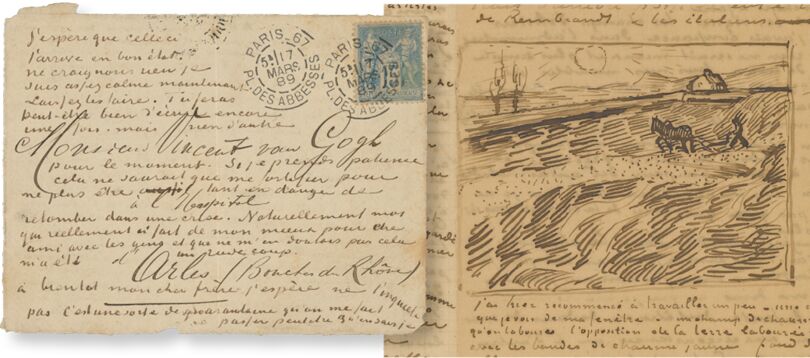 j'espère que celleci
j'arrive en bon état.
ne craignons rien je
suis assez calme maintenant
Laissez les faire. Tu feras
peut-être bien d'écrire encore
une fois. mais rien d'autre
Monsieur Vincent van Gogh
pour le moment. Si je prends patience
cela ne saurait que me fortifier pour
ne plus être autant en danger de
à l'Hospital
retomber dans une crise. Naturellement moi
qui reellement ai fait de mon mieux pour être
ami avec les gens et que ne m'en doutais pas cela
m'a été un rude coup.
Arles (Bouches du Rhône)
à bientot mon cher frere j'espère ne t'inquiète
pas C'est une sorte de quarantaine qu'on me fait
passer peut être Qu'en sais je
PARIS_67
5E/17
MARS
89
PL. DES ABBESSES
PARIS_67
MARS
89
PL. DES ABBESSES
de Rembrandt & les italiens.
j'ai hier recommencé à travailler un peu – une
que je vois de ma fenêtre – un champ de chaume
qu'on laboure l'opposition de la terre labourée
avec les bandes de chaume jaune fond